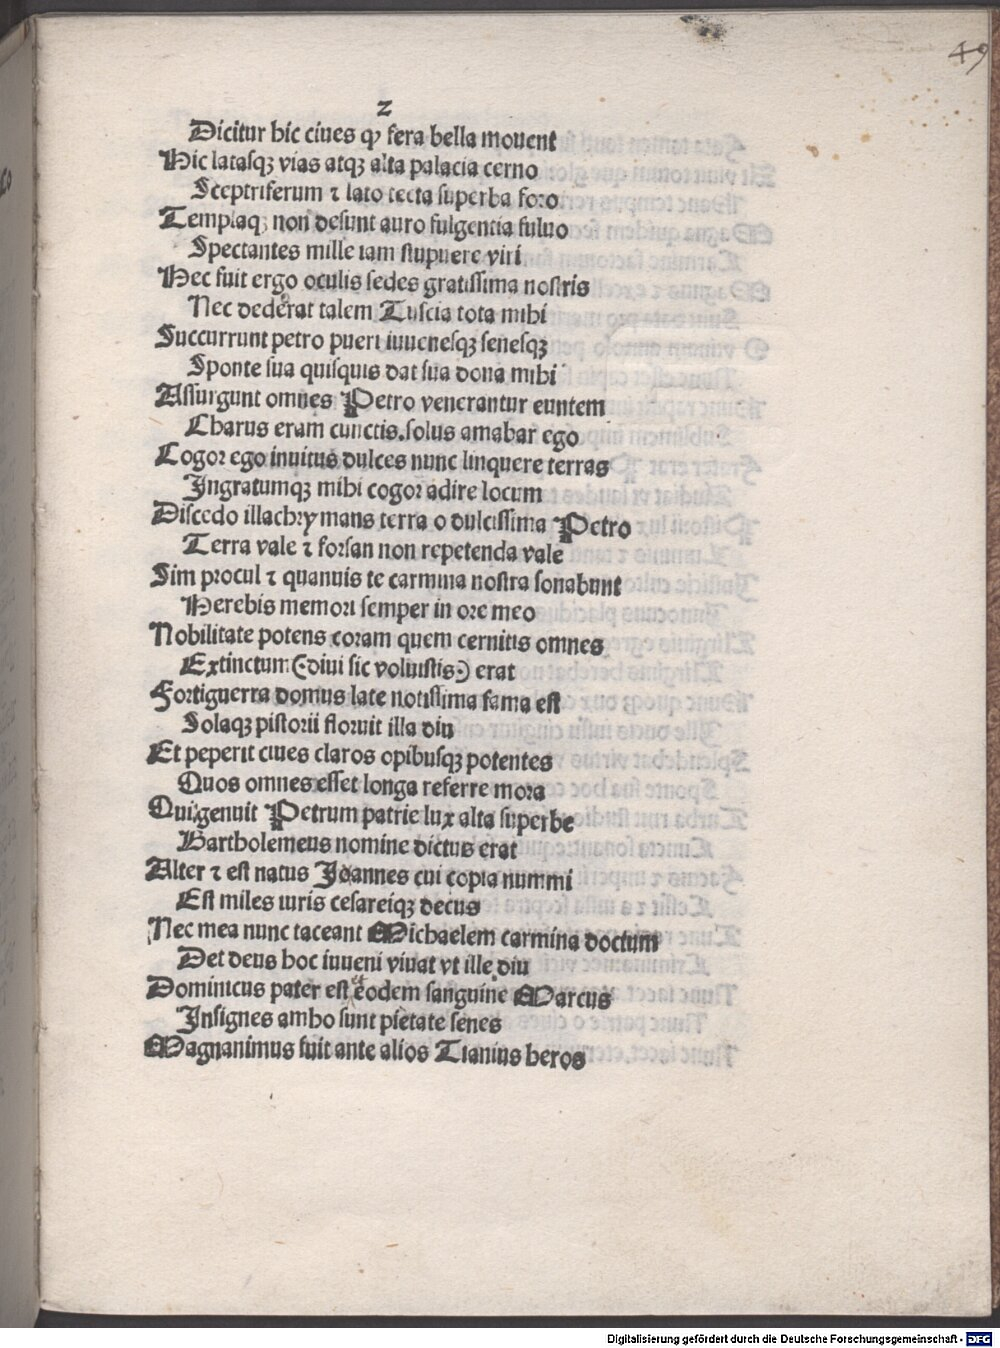 49
2
Dicitur hic ciues qꝫ fera bella mouent
Hic latasqꝫ vias atqꝫ alta palacia cerno
Sceptriferum ⁊ lato tecta superba foro
Templaqꝫ non desunt auro fulgentia fuluo
Spectantes mille iam stupuere viri
Hec fuit ergo oculis sedes gratissima nostris
Nec dederat talem Tuscia tota mihi
Succurrunt petro pueri iuuenesqꝫ senesqꝫ
Sponte sua quisquis dat sua dona mihi
Assurgunt omnes Petro venerantur euntem
Charus eram cunctis.solus amabar ego
Cogor ego inuitus dulces nunc linquere terras
Ingratumqꝫ mihi cogor adire locum
Discedo illachrymans terra o dulcissima Petro
Terra vale ⁊ forsan non repetenda vale
Sim procul ⁊ quanuis te carmina nostra sonabunt
Herebis memori semper in ore meo
Nobilitate potens coram quem cernitis omnes
Extinctum (·diui sic voluistis·) erat
Fortiguerra domus late notissima fama est
Solaqꝫ pistorii floruit illa diu
Et peperit ciues claros opibusqꝫ potentes
Quos omnes esset longa referre mora
Qui genuit Petrum patrie lux alta superbe
Bartholemeus nomine dictus erat
Alter ⁊ est natus Joannes cui copia nummi
Est miles iuris cesareiqꝫ decus
Nec mea nunc taceant Michaelem carmina doctum
Det deus hoc iuueni viuat vt ille diu
Dominicus pater est et eodem sanguine Marcus
Insignes ambo sunt pietate senes
Magnanimus fuit ante alios Tianius heros
Digitalisierung gefördert durch die Deutsche Forschungsgemeinschaft - DFG